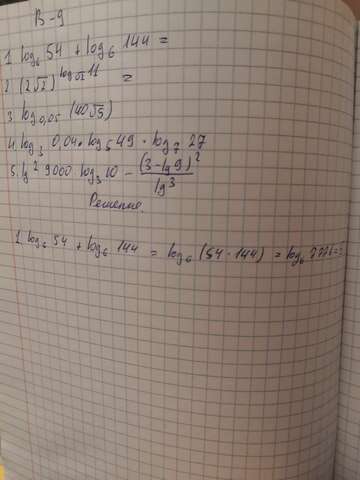 В-9
1. log₆ 54 + log₆ 144 =
2. (2√2)^log√2 11 =
3. log₀,₀₅ (40√5)
4. log₃ 0,04 · log₅ 49 · log₇ 27
5. lg² 9000 · log₃ 10 - (3 - lg 9)² / lg 3
Решение.
1. log₆ 54 + log₆ 144 = log₆ (54 · 144) = log₆ 7776 =